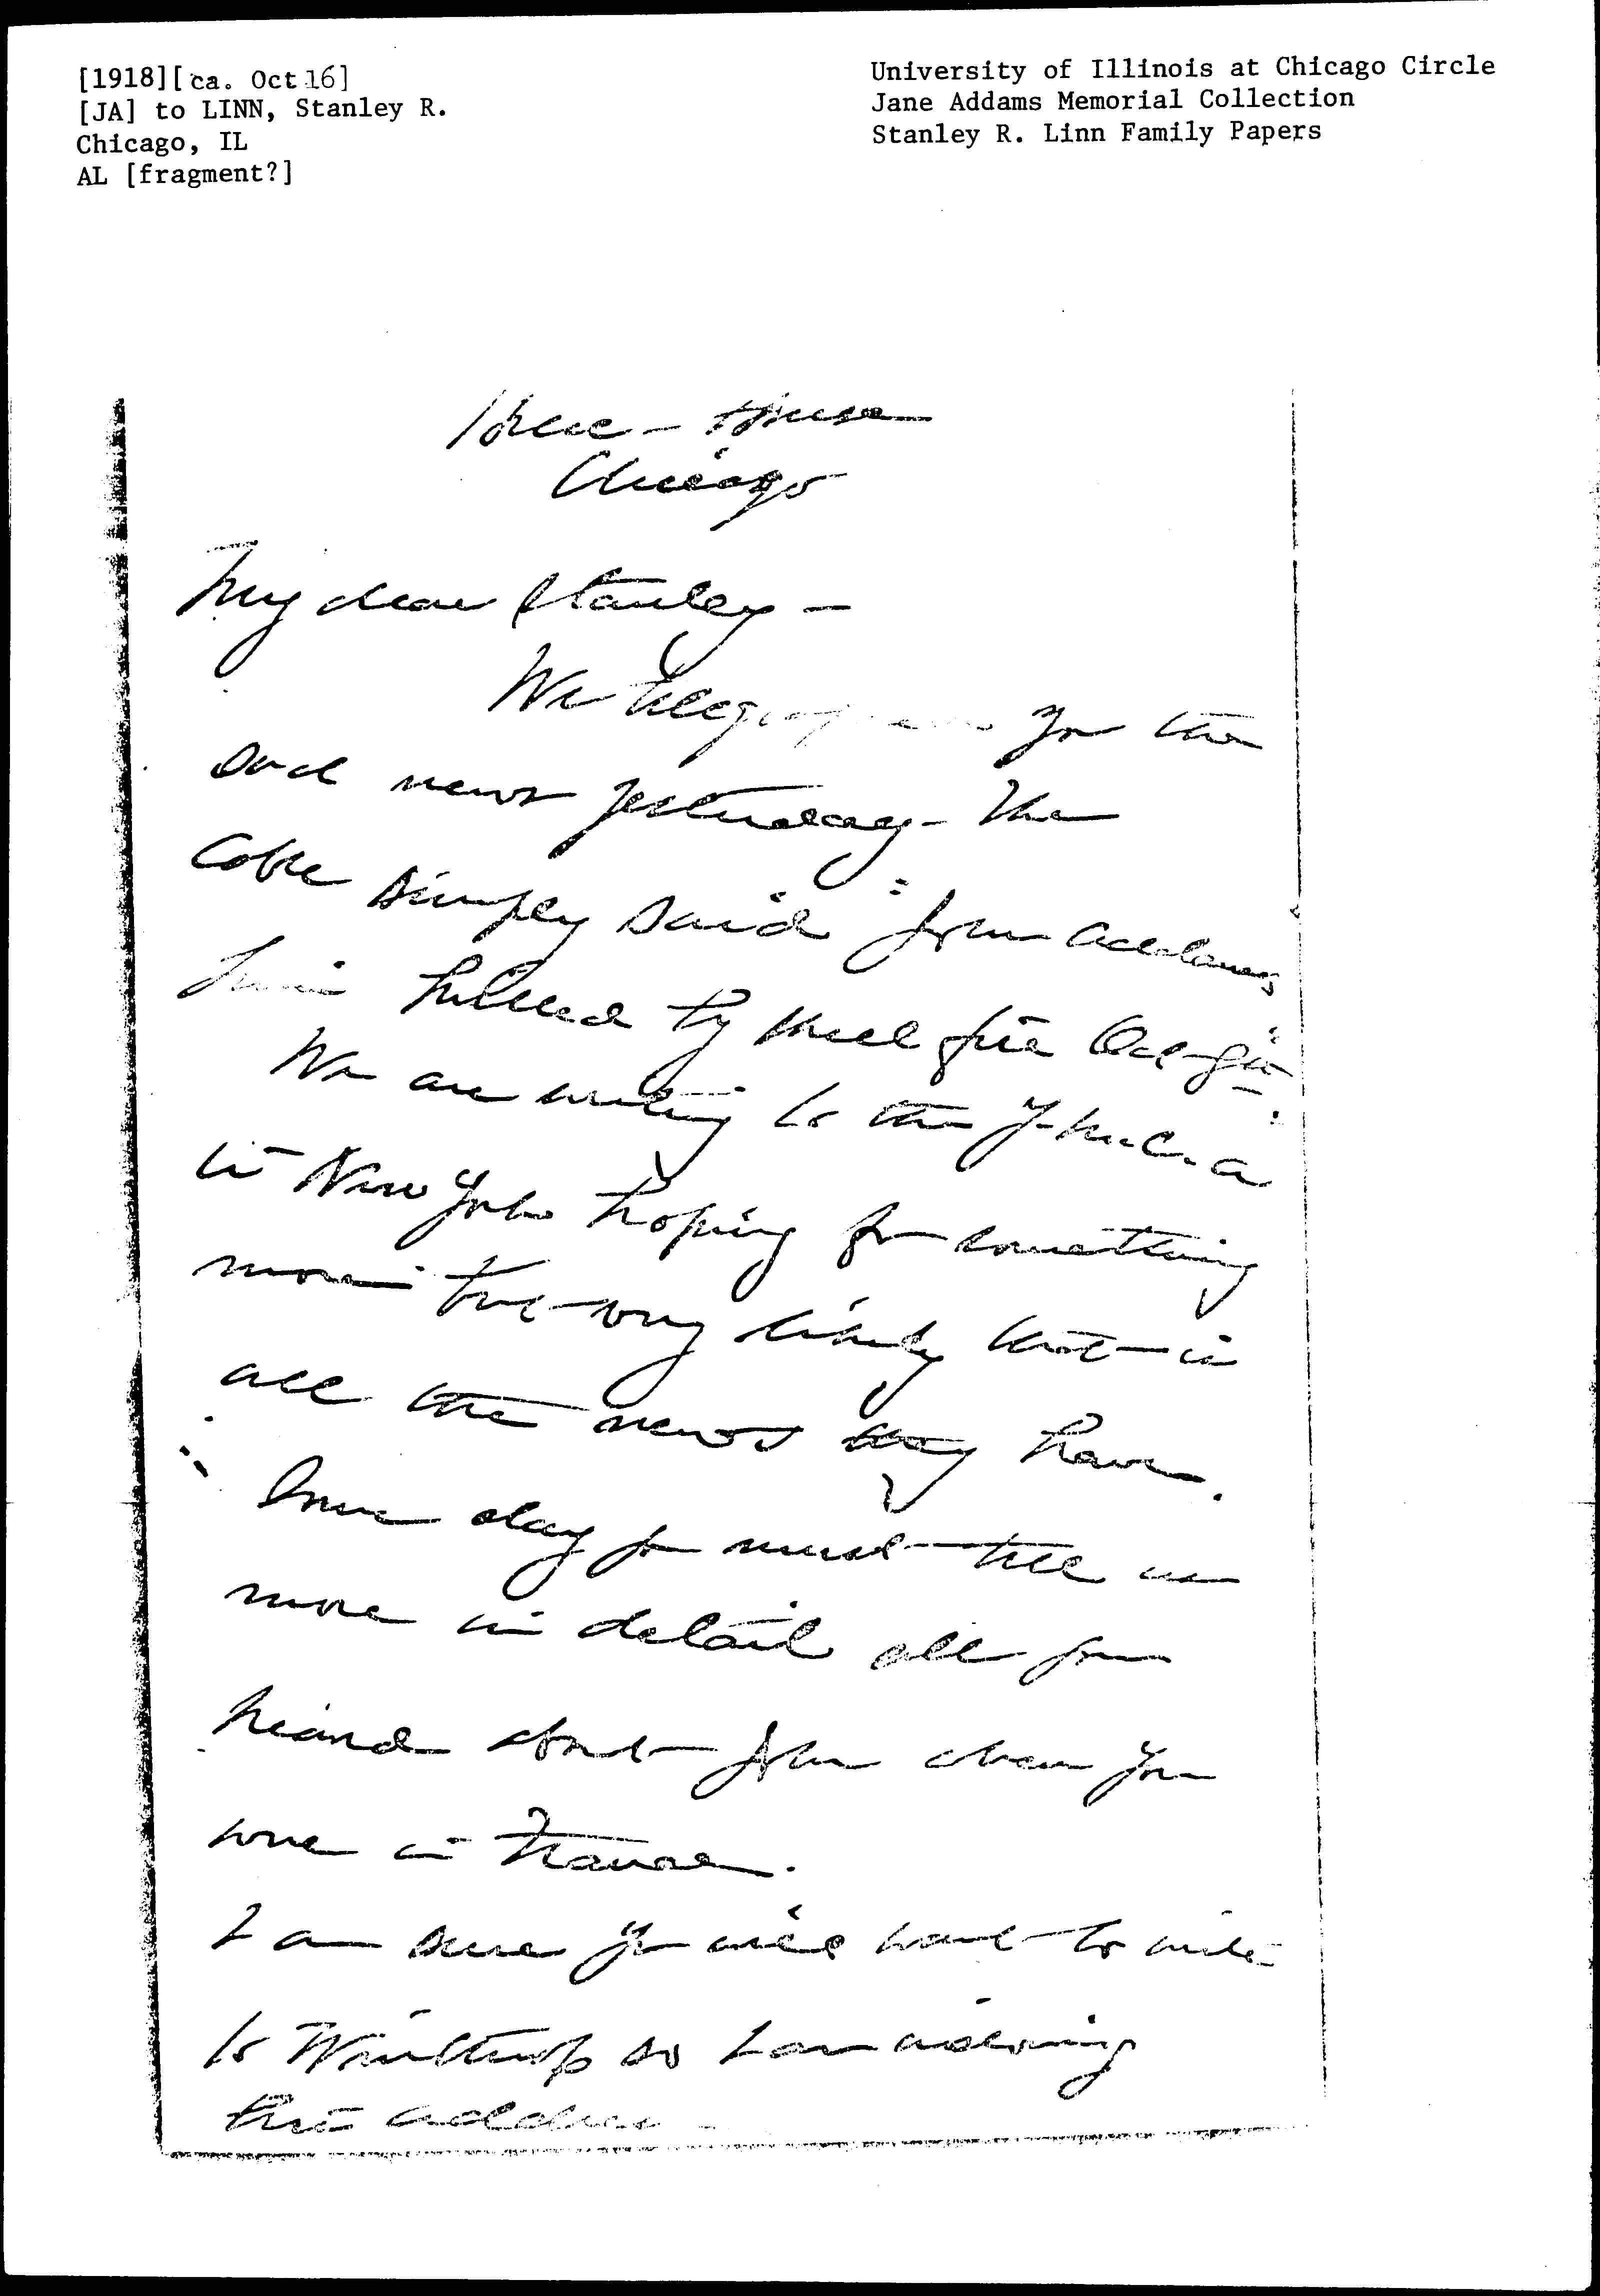 [1918][ca. Oct 16]
[JA] to LINN, Stanley R.
Chicago, IL
AL [fragment?]
University of Illinois at Chicago Circle
Jane Addams Memorial Collection
Stanley R. Linn Family Papers
Hull-House
Chicago
My dear Stanley –
We telegraphed you the
sad news yesterday – The
cable simply said "John Addams
Linn killed by shell fire Oct
We are writing to the Y.M.C.A
in New York hoping for something
more but very likely that is
all the news they have.
Some day you must tell us
more in detail all you
heard about John when you
were in France.
I am sure you will want to write
to Winthrop so I am
his address –